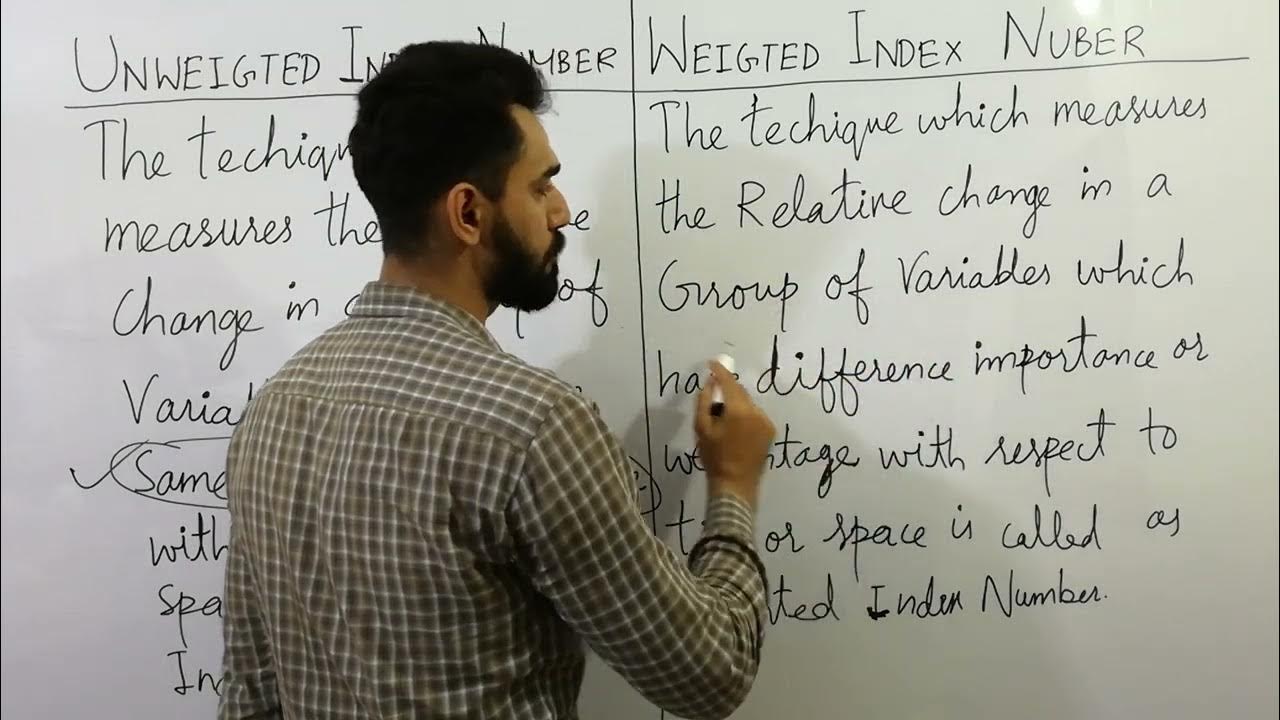 UNWEIGTED INDEX NUMBER
The techiq
measures the
Change in of
Varia
Same
with
spa
In
WEIGTED INDEX NUBER
The techique which measures
the Relative change in a
Group of Variables which
have difference importance or
weightage with respect to
time or space is called as
ted Index Number.